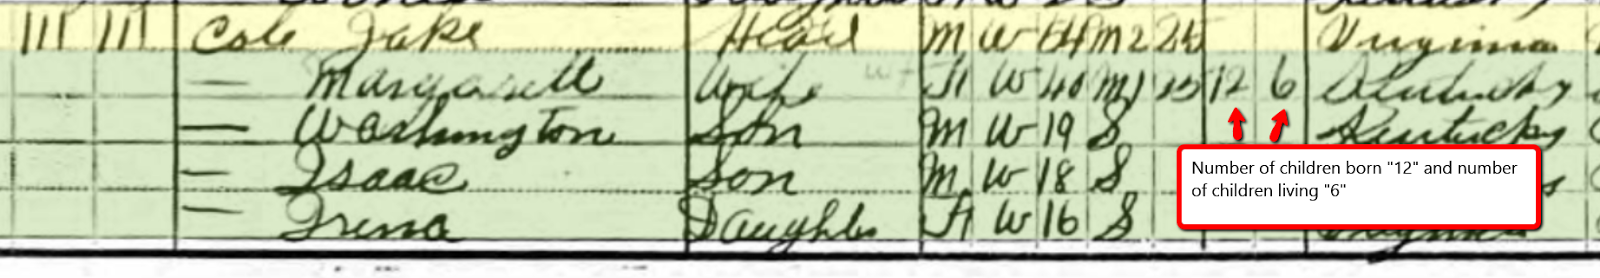 111 111 Cole Jake Head M W 64 M2 25 Virginia
— Margarett Wife F W 40 M1 25 12 6 Kentucky
— Washington Son M W 19 S Kentucky
— Isaac Son M W 18 S
— Irena Daughter F W 16 S
Number of children born "12" and number
of children living "6"